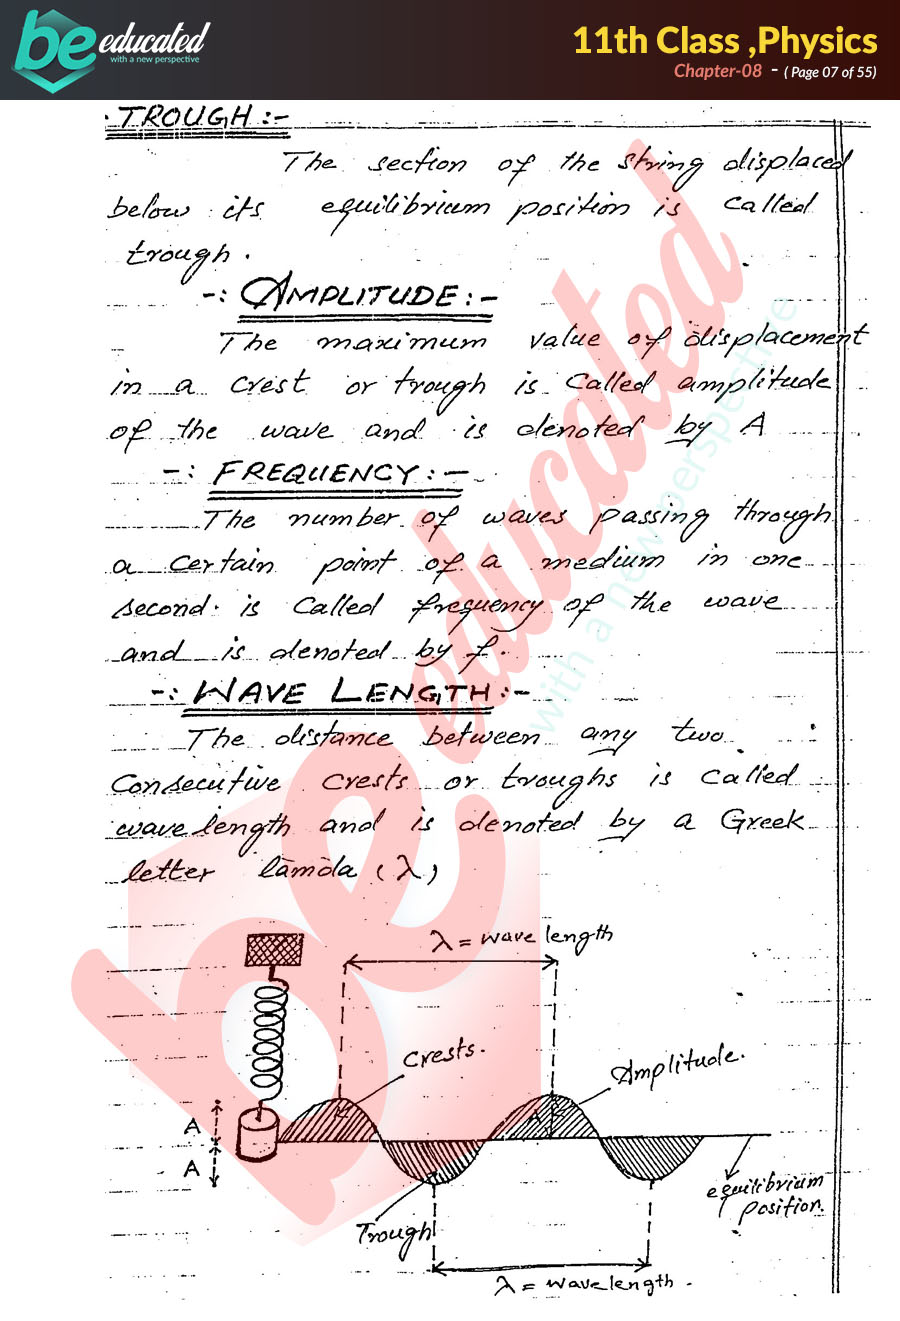 be educated
with a new perspective
11th Class ,Physics
Chapter-08 - ( Page 07 of 55)
TROUGH :-
The section of the string displaced
below its equilibrium position is called
trough.
-: AMPLITUDE :-
The maximum value of displacement
in a crest or trough is called amplitude
of the wave and is denoted by A
-: FREQUENCY :-
The number of waves passing through
a certain point of a medium in one
second is called frequency of the wave
and is denoted by f.
-: WAVE LENGTH :-
The distance between any two
consecutive crests or troughs is called
wave length and is denoted by a Greek
letter lamda (λ)
λ = wave length
Crests.
Amplitude.
A
A
A
equilibrium
position.
Trough
λ = wave length.
be educated
with a new perspective